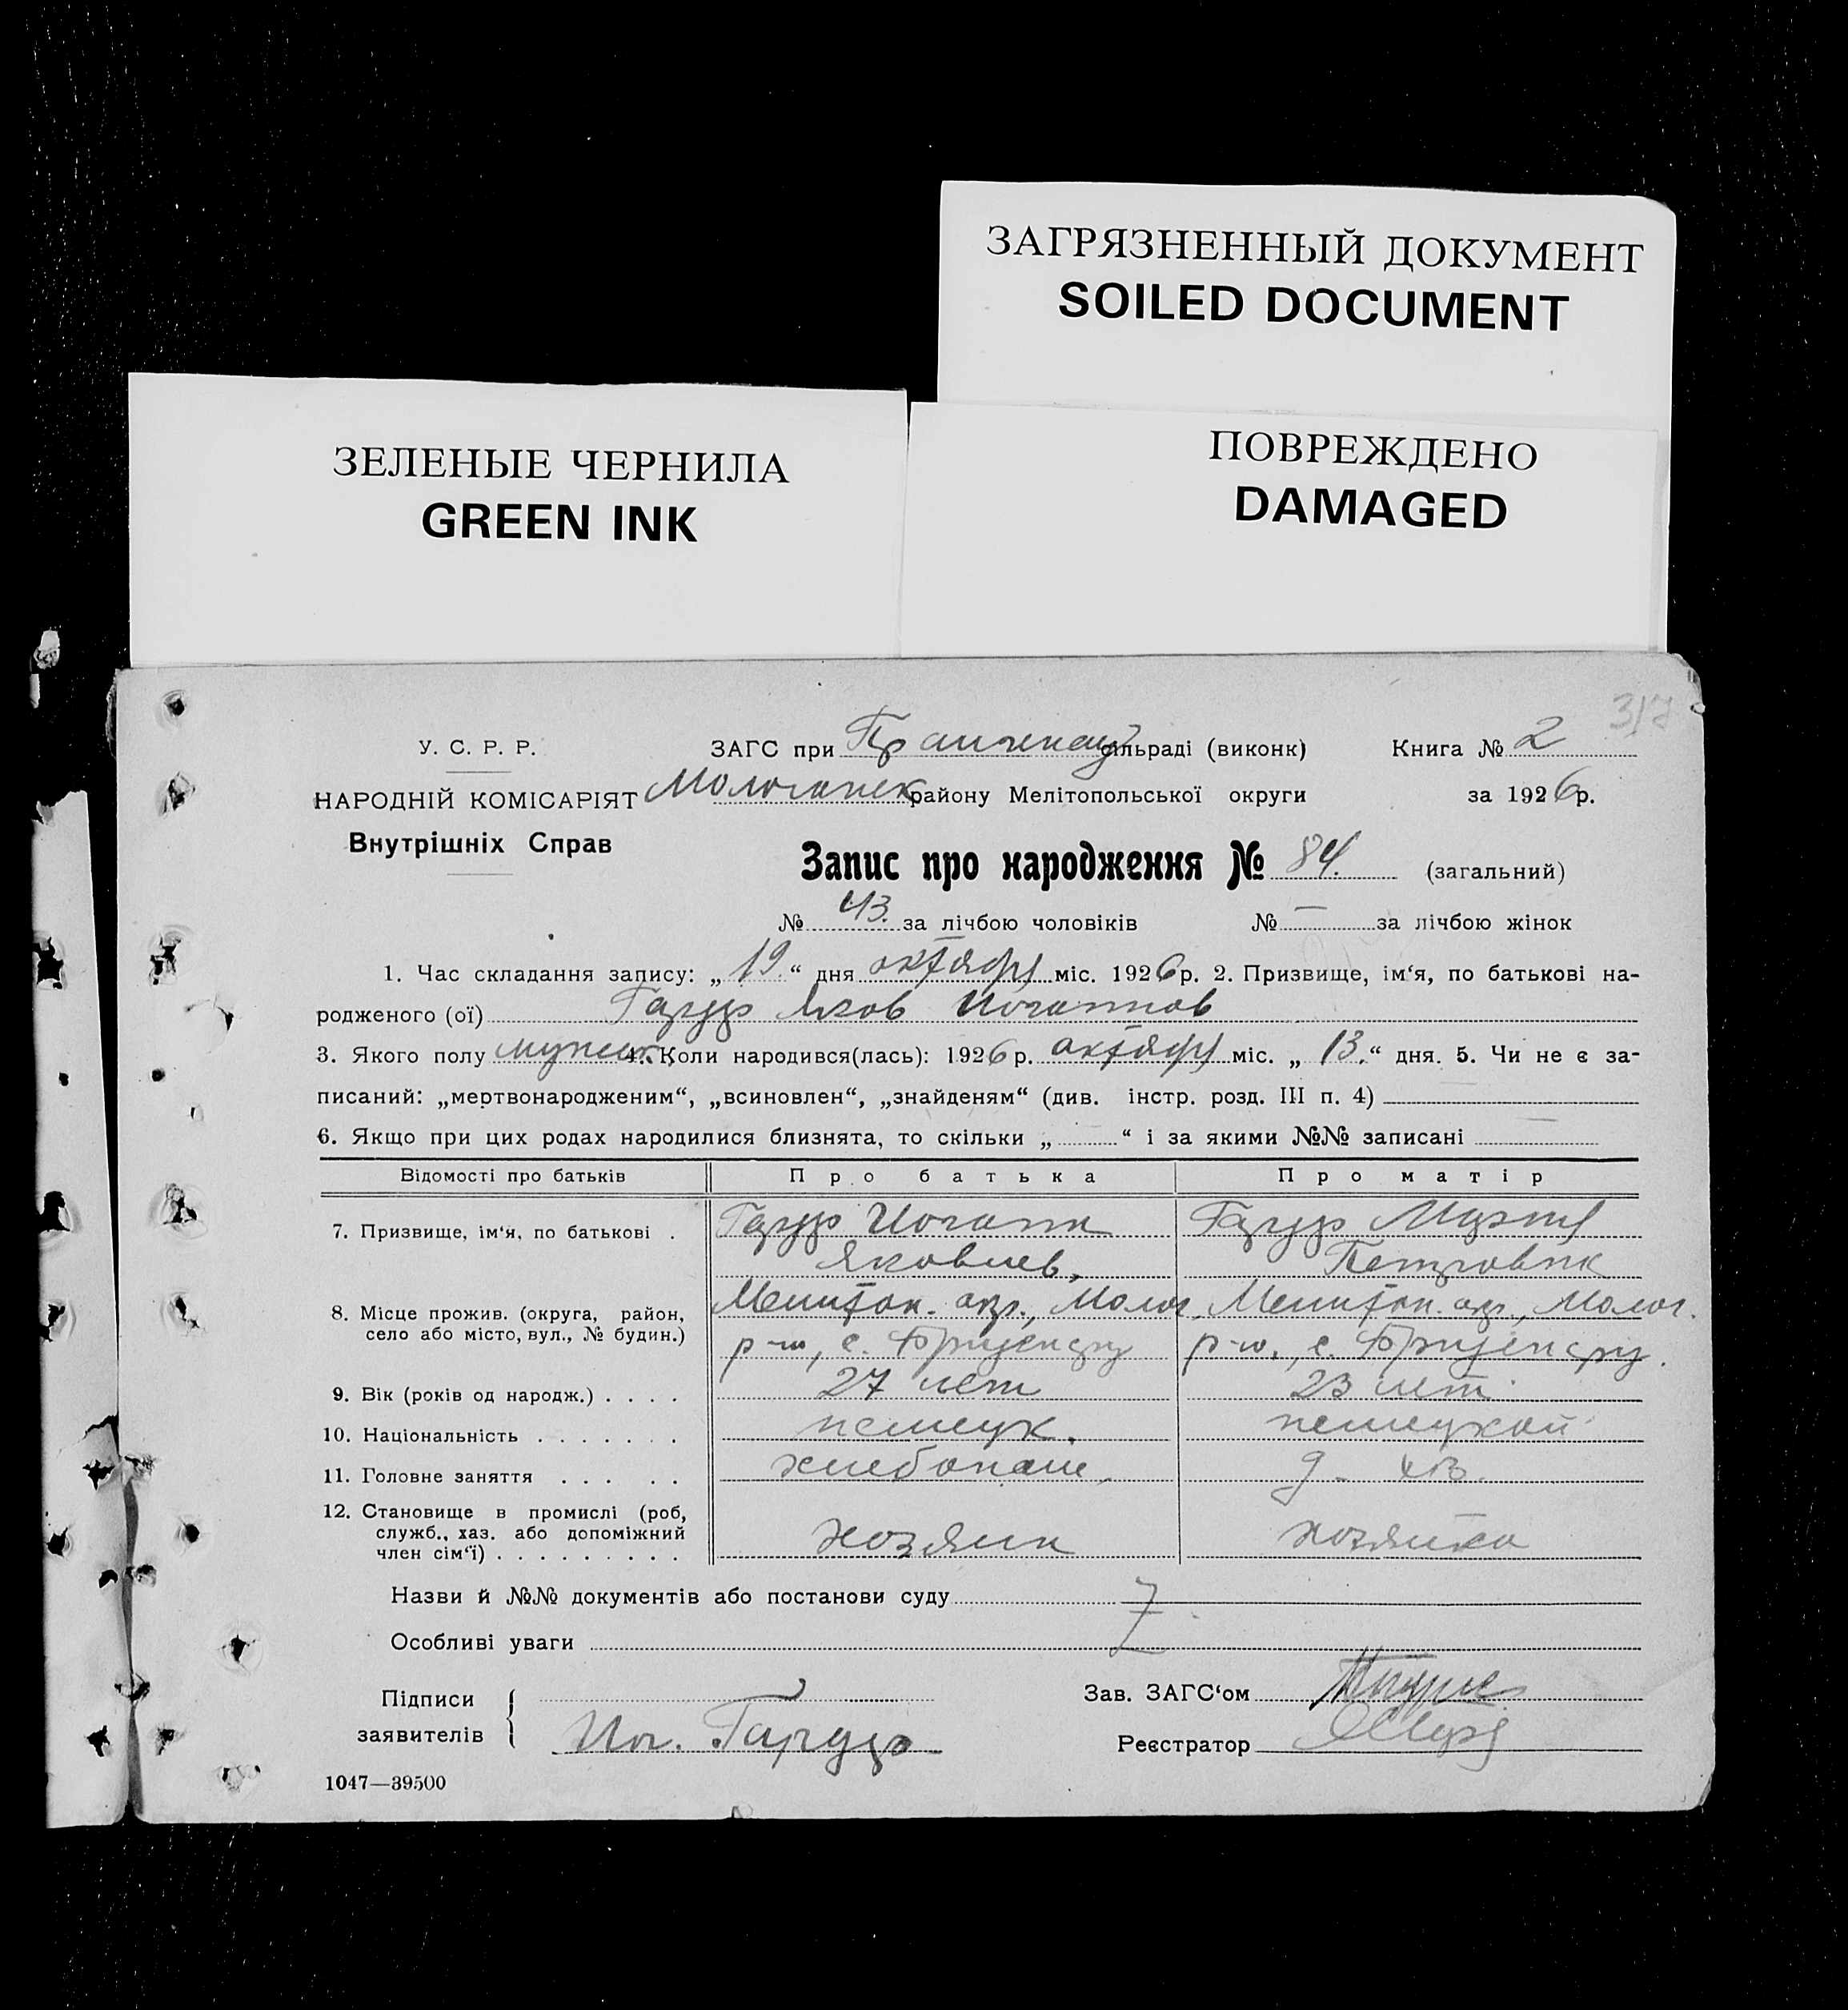 ЗАГРЯЗНЕННЫЙ ДОКУМЕНТ
SOILED DOCUMENT
ЗЕЛЕНЫЕ ЧЕРНИЛА
GREEN INK
ПОВРЕЖДЕНО
DAMAGED
317
У. С. Р. Р. ЗАГС при сільраді (виконк) Книга № 2
НАРОДНІЙ КОМІСАРІЯТ району Мелітопольської округи за 1926 р.
Внутрішніх Справ
Запис про народження № 84. (загальний)
№ 43. за лічбою чоловіків № — за лічбою жінок
1. Час складання запису: „19.“ дня октября міс. 1926 р. 2. Призвище, ім‘я, по батькові на-
родженого (ої) Яков Иоганнов
3. Якого полу мужск. 4. Коли народився(лась): 1926 р. октября міс. „13.“ дня. 5. Чи не є за-
писаний: „мертвонародженим“, „всиновлен“, „знайденям“ (див. інстр. розд. III п. 4)
6. Якщо при цих родах народилися близнята, то скільки „ “ і за якими №№ записані
Відомості про батьків Про батька Про матір
7. Призвище, ім‘я, по батькові . Иоганн
Яковлев. Петровн
8. Місце прожив. (округа, район, село або місто, вул., № будин.) Мелитоп. окр., Молоч. Мелитоп. окр., Молоч.
р-н, с. р-н., с.
9. Вік (років од народж.) . . . . 27 лет 23 лет
10. Національність . . . . . . . немецк. немецкой
11. Головне заняття . . . . . хлебопаш. д. хоз.
12. Становище в промислі (роб, служб., хаз. або допоміжний член сім‘ї) . . . . . . . . . хозяин хозяйка
Назви й №№ документів або постанови суду
Особливі уваги
Підписи
заявителів Ив.
Зав. ЗАГС‘ом
Реєстратор
1047—39500